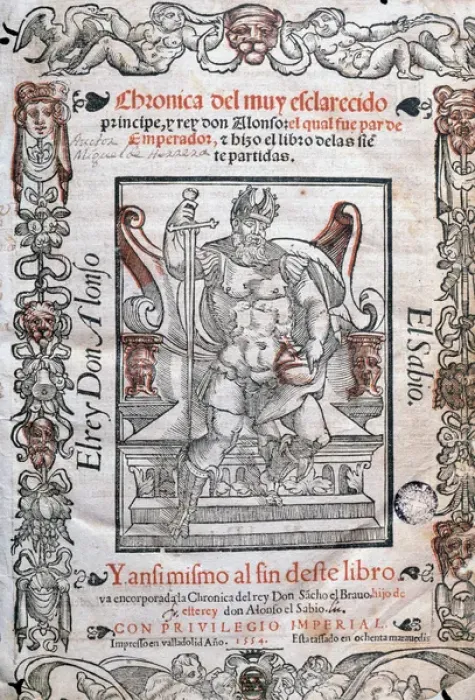 Chronica del muy esclarecido
principe, y rey don Alonso: el qual fue par de
Emperador, & hizo el libro delas siē
te partidas.
Auctor
Miguel de Herrera
El rey Don Alonso
El Sabio.
Y ansi mismo al fin deste libro
va encorporada la Chronica del rey Don Sācho el Brauo, hijo de
este rey don Alonso el Sabio.
CON PRIVILEGIO IMPERIAL.
Impresso en valladolid Año. 1554. Esta tassado en ochenta marauedis